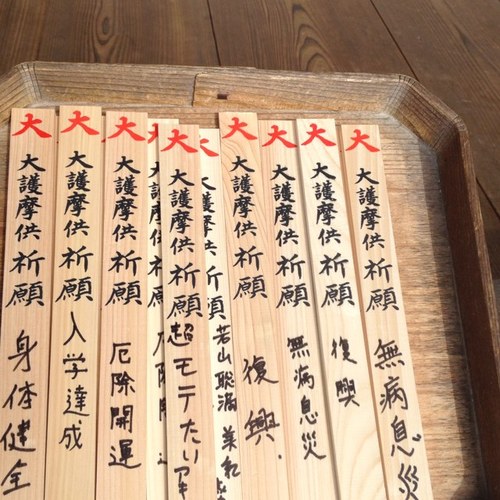 大 大護摩供祈願 身体健全
大 大護摩供祈願 入学達成
大 大護摩供祈願 厄除開運
大護摩供祈願 厄除開
大 大護摩供祈願 超モテたい
大護摩供祈願 若山聡満
大 大護摩供祈願 復興
大 大護摩供祈願 無病息災
大 大護摩供祈願 復興
大 大護摩供祈願 無病息災